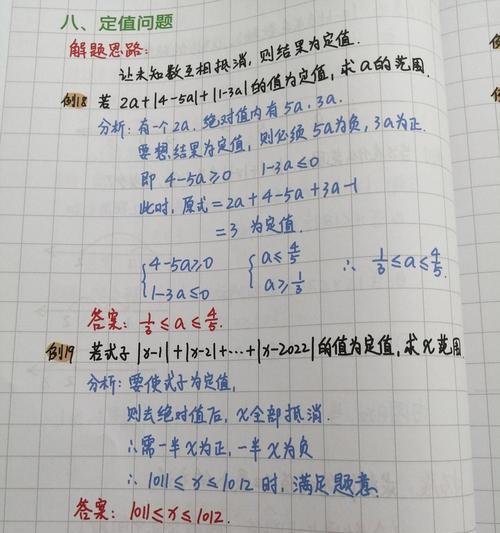 八、定值问题
解题思路:
让未知数互相抵消,则结果为定值.
例18 若 2a+|4-5a|+|1-3a|的值为定值,求a的范围.
分析:有一个2a,绝对值内有5a,3a.
要想结果为定值,则必须5a为负,3a为正.
即 4-5a≥0 1-3a≤0
此时,原式=2a+4-5a+3a-1
=3 为定值.
{4-5a≥0 {a≤4/5
{1-3a≤0 {a≥1/3 ∴ 1/3≤a≤4/5.
答案: 1/3≤a≤4/5.
例19 若式子|x-1|+|x-2|+…+|x-2022|的值为定值,求x范围.
分析:要使式子为定值,
则去绝对值后,x全部抵消.
∴需一半x为正,一半x为负
∴ 1011≤x≤1012 时,满足题意.
答案: 1011≤x≤1012.